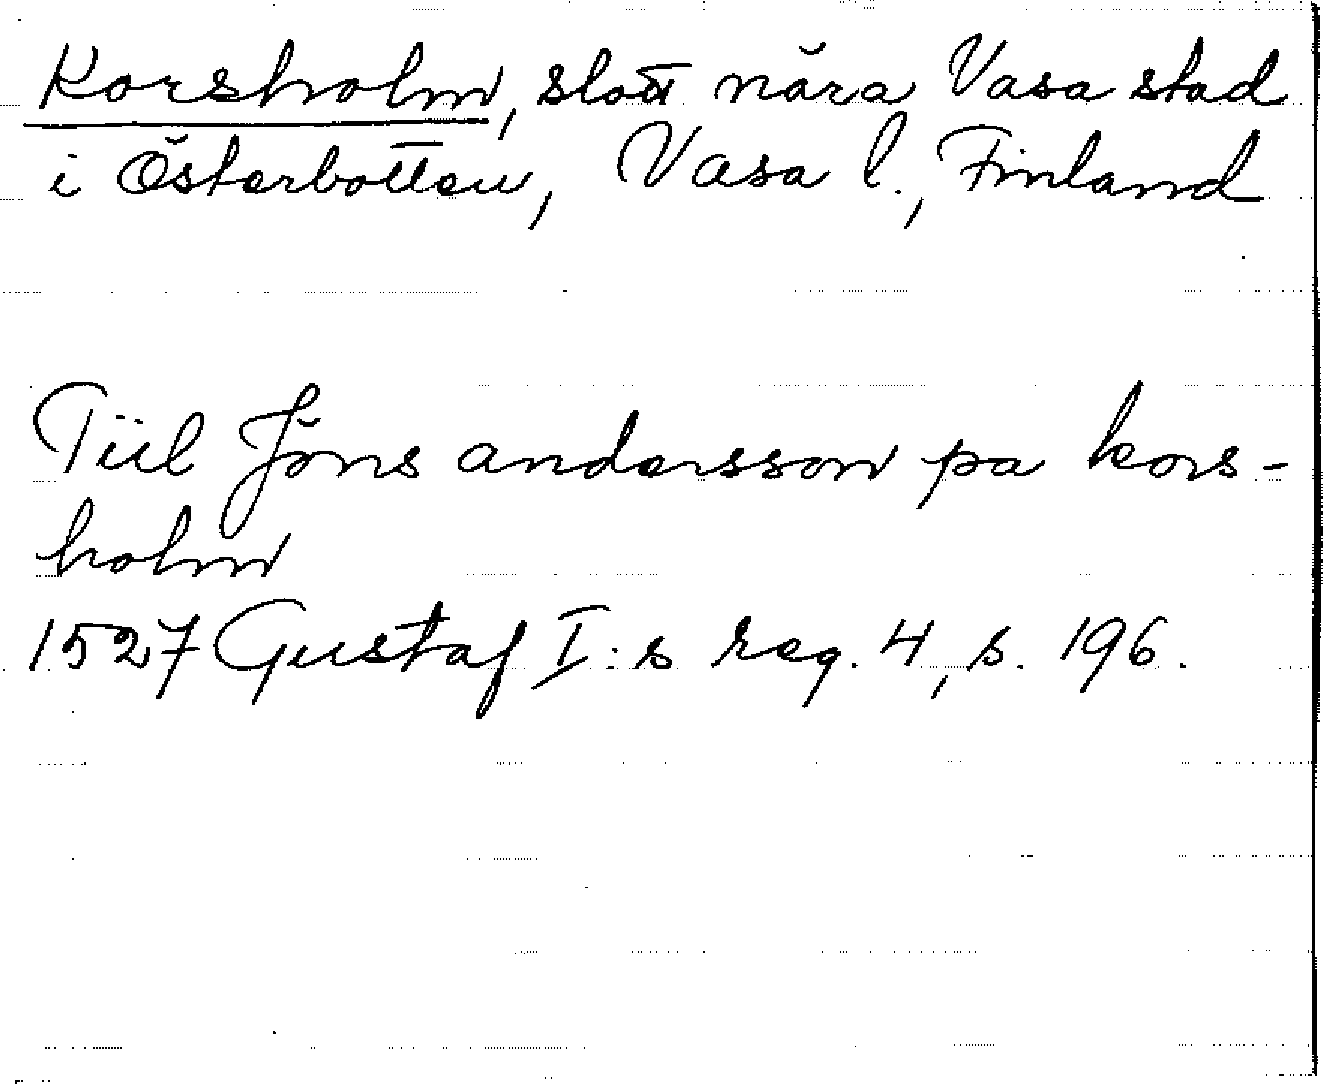 Korsholm, slott nära Vasa stad
i Österbotten, Vasa l., Finland
Tiil Jöns andersson pa kors-
holm
1527 Gustaf I:s reg. 4, s. 196.